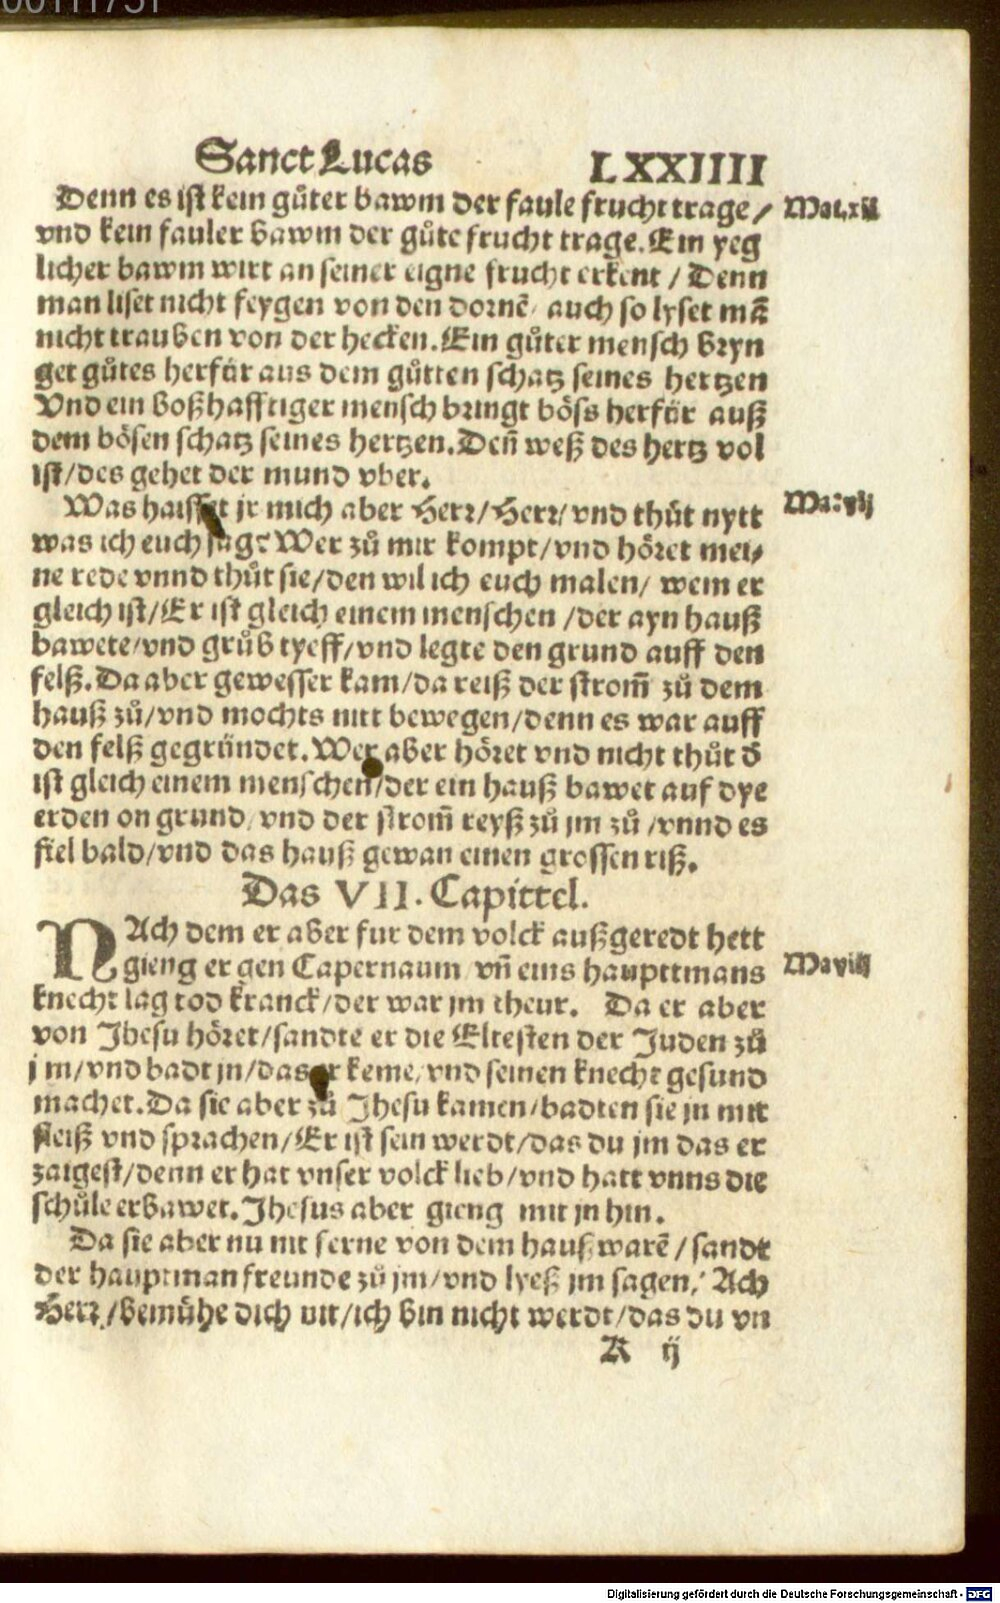 00111731
Sanct Lucas LXXIIII
Denn es ist kein gůter bawm der faule frucht trage / Mat.xii
vnd kein fauler bawm der gůte frucht trage. Ein yeg
licher bawm wirt an seiner eigne frucht erkent / Denn
man liset nicht feygen von den dornē / auch so lyset mā
nicht trauben von der hecken. Ein gůter mensch bryn
get gůtes herfür aus dem gůtten schatz seines hertzen
Vnd ein boßhafftiger mensch bringt böss herfür auß
dem bösen schatz seines hertzen. Deñ weß des hertz vol
ist/des gehet der mund vber.
Was haisset jr mich aber Herr/Herr/vnd thůt nytt Mat.vij
was ich euch sag? Wer zů mir kompt/vnd höret mei/
ne rede vnnd thůt sie/den wil ich euch malen/ wem er
gleich ist/Er ist gleich einem menschen /der ayn hauß
bawete/vnd grůb tyeff/vnd legte den grund auff den
felß. Da aber gewesser kam/da reiß der strom̄ zů dem
hauß zů/vnd mochts nit bewegen/denn es war auff
den felß gegründet. Wer aber höret vnd nicht thůt d̄
ist gleich einem menschen/der ein hauß bawet auf dye
erden on grund/vnd der strom̄ reyß zů jm zů /vnnd es
fiel bald/vnd das hauß gewan einen grossen riß.
Das VII. Capittel.
NAch dem er aber fur dem volck außgeredt hett
gieng er gen Capernaum vñ eins haupttmans Ma viij
knecht lag tod kranck/der war jm theur. Da er aber
von Jhesu höret/sandte er die Eltesten der Juden zů
jm/vnd badt jn/das er keme/vnd seinen knecht gesund
machet. Da sie aber zů Jhesu kamen/badten sie jn mit
fleiß vnd sprachen/Er ist sein werdt/das du jm das er
zaigest/denn er hat vnser volck lieb/vnd hatt vnns die
schůle erbawet. Jhesus aber gieng mit jn hin.
Da sie aber nu nit ferne von dem hauß warē/sandt
der hauptman freunde zů jm/vnd lyeß jm sagen/ Ach
Herr/bemühe dich nit/ich bin nicht werdt/das du vn
K ij
Digitalisierung gefördert durch die Deutsche Forschungsgemeinschaft - DFG